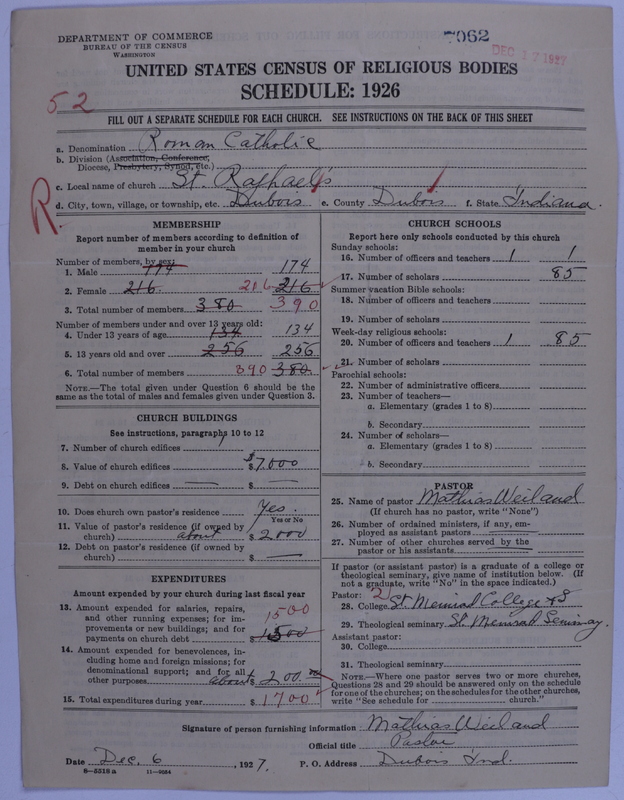 DEPARTMENT OF COMMERCE
BUREAU OF THE CENSUS
WASHINGTON
7062
DEC 17 1927
UNITED STATES CENSUS OF RELIGIOUS BODIES
SCHEDULE: 1926
52
FILL OUT A SEPARATE SCHEDULE FOR EACH CHURCH. SEE INSTRUCTIONS ON THE BACK OF THIS SHEET
a. Denomination Roman Catholic
b. Division (Association, Conference,
Diocese, Presbytery, Synod, etc.)
c. Local name of church St. Raphael's
d. City, town, village, or township, etc. Dubois e. County Dubois f. State Indiana.
R.
MEMBERSHIP
Report number of members according to definition of
member in your church
Number of members, by sex:
1. Male 174 174
2. Female 216 216 216
3. Total number of members 380 390
Number of members under and over 13 years old:
4. Under 13 years of age 134 134
5. 13 years old and over 256 256
6. Total number of members 390 380
NOTE.—The total given under Question 6 should be the
same as the total of males and females given under Question 3.
CHURCH BUILDINGS
See instructions, paragraphs 10 to 12
7. Number of church edifices 1
8. Value of church edifices $7.000
9. Debt on church edifices — $ —
10. Does church own pastor's residence Yes.
Yes or No
11. Value of pastor's residence (if owned by
church) about $ 2000
12. Debt on pastor's residence (if owned by
church) $ —
EXPENDITURES
Amount expended by your church during last fiscal year
13. Amount expended for salaries, repairs,
and other running expenses; for im-
provements or new buildings; and for
payments on church debt $ 1500 1500
14. Amount expended for benevolences, in-
cluding home and foreign missions; for
denominational support; and for all
other purposes about $ 200.00
15. Total expenditures during year $ 1700
CHURCH SCHOOLS
Report here only schools conducted by this church
Sunday schools:
16. Number of officers and teachers 1 1
17. Number of scholars 85
Summer vacation Bible schools:
18. Number of officers and teachers
19. Number of scholars
Week-day religious schools:
20. Number of officers and teachers 1 85
21. Number of scholars
Parochial schools:
22. Number of administrative officers
23. Number of teachers—
a. Elementary (grades 1 to 8)
b. Secondary
24. Number of scholars—
a. Elementary (grades 1 to 8)
b. Secondary
PASTOR
25. Name of pastor Mathias Weiland
(If church has no pastor, write "None")
26. Number of ordained ministers, if any, em-
ployed as assistant pastors —
27. Number of other churches served by the
pastor or his assistants —
If pastor (or assistant pastor) is a graduate of a college or
theological seminary, give name of institution below. (If
not a graduate, write "No" in the space indicated.)
Pastor: 2
28. College St. Meinrad College
29. Theological seminary St. Meinrad Seminary.
Assistant pastor:
30. College
31. Theological seminary
NOTE.—Where one pastor serves two or more churches,
Questions 28 and 29 should be answered only on the schedule
for one of the churches; on the schedules for the other churches,
write "See schedule for church."
Signature of person furnishing information Mathias Weiland
Official title Pastor
Date Dec. 6, 1927. P. O. Address Dubois Ind.
8—5518a 11—9054